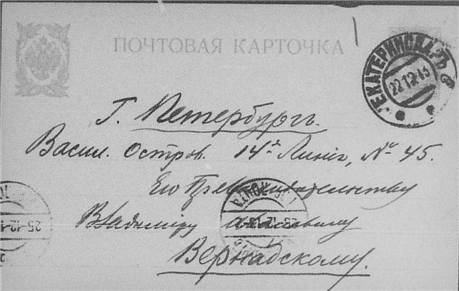 ПОЧТОВАЯ КАРТОЧКА
ЕКАТЕРИНОДАРЪ
Г. Петербургъ.
Васил. Остров. 14ая Линія, № 45.
Его Превосходительству
Владиміру
Вернадскому.
25-12-1